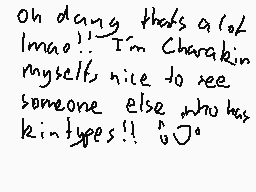 oh dang thats a lot
lmao!! I'm Charakin
myself, nice to see
someone else who has
kintypes!!